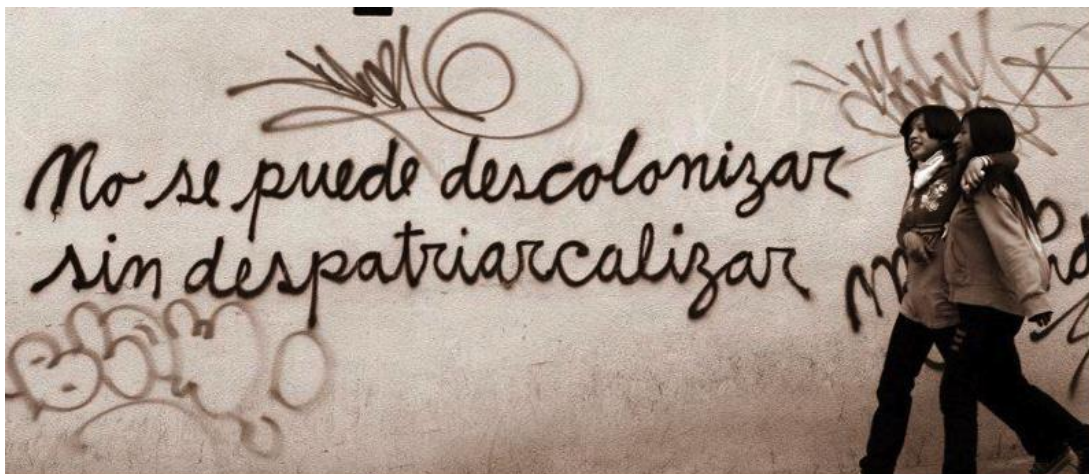 No se puede descolonizar
sin despatriarcalizar